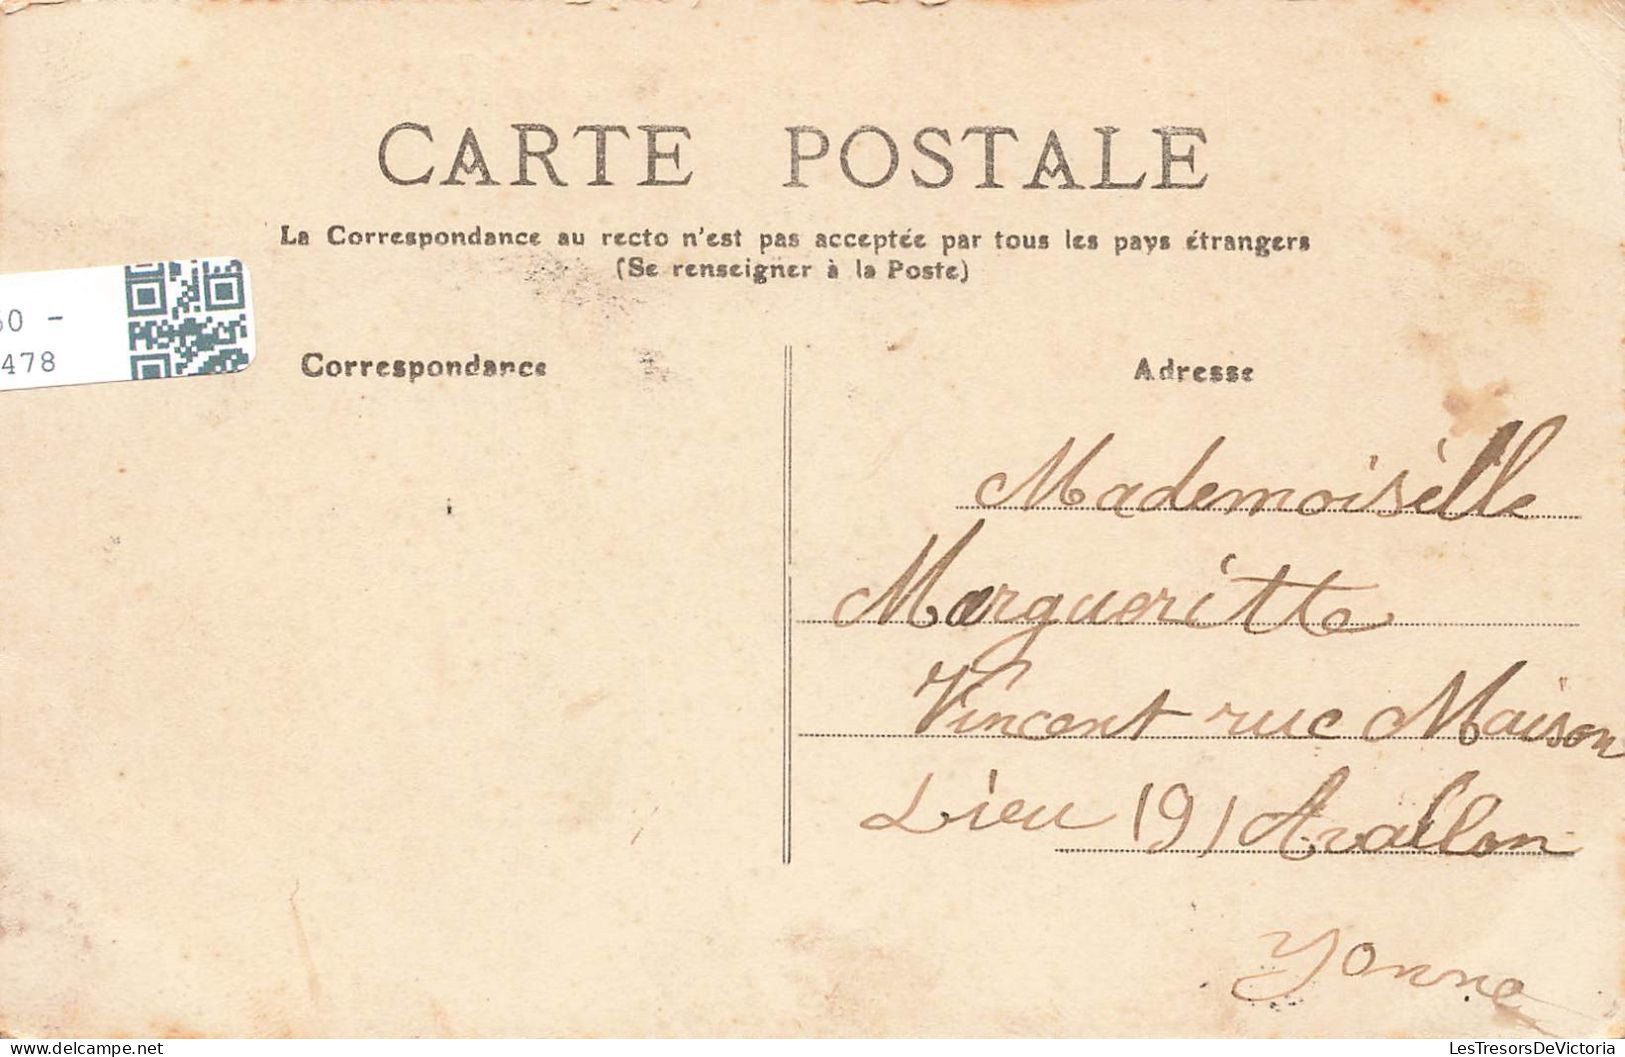 CARTE POSTALE
La Correspondance au recto n'est pas acceptée par tous les pays étrangers
(Se renseigner à la Poste)
60 -
478
Correspondance
Adresse
Mademoiselle
Margueritte
Vincent rue Maison
Lieu (9) Avallon
Yonne
delcampe.net
LesTresorsDeVictoria